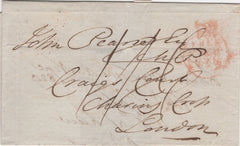 John Pearse Esq
M P
Craigs Court
Charing Cross
London